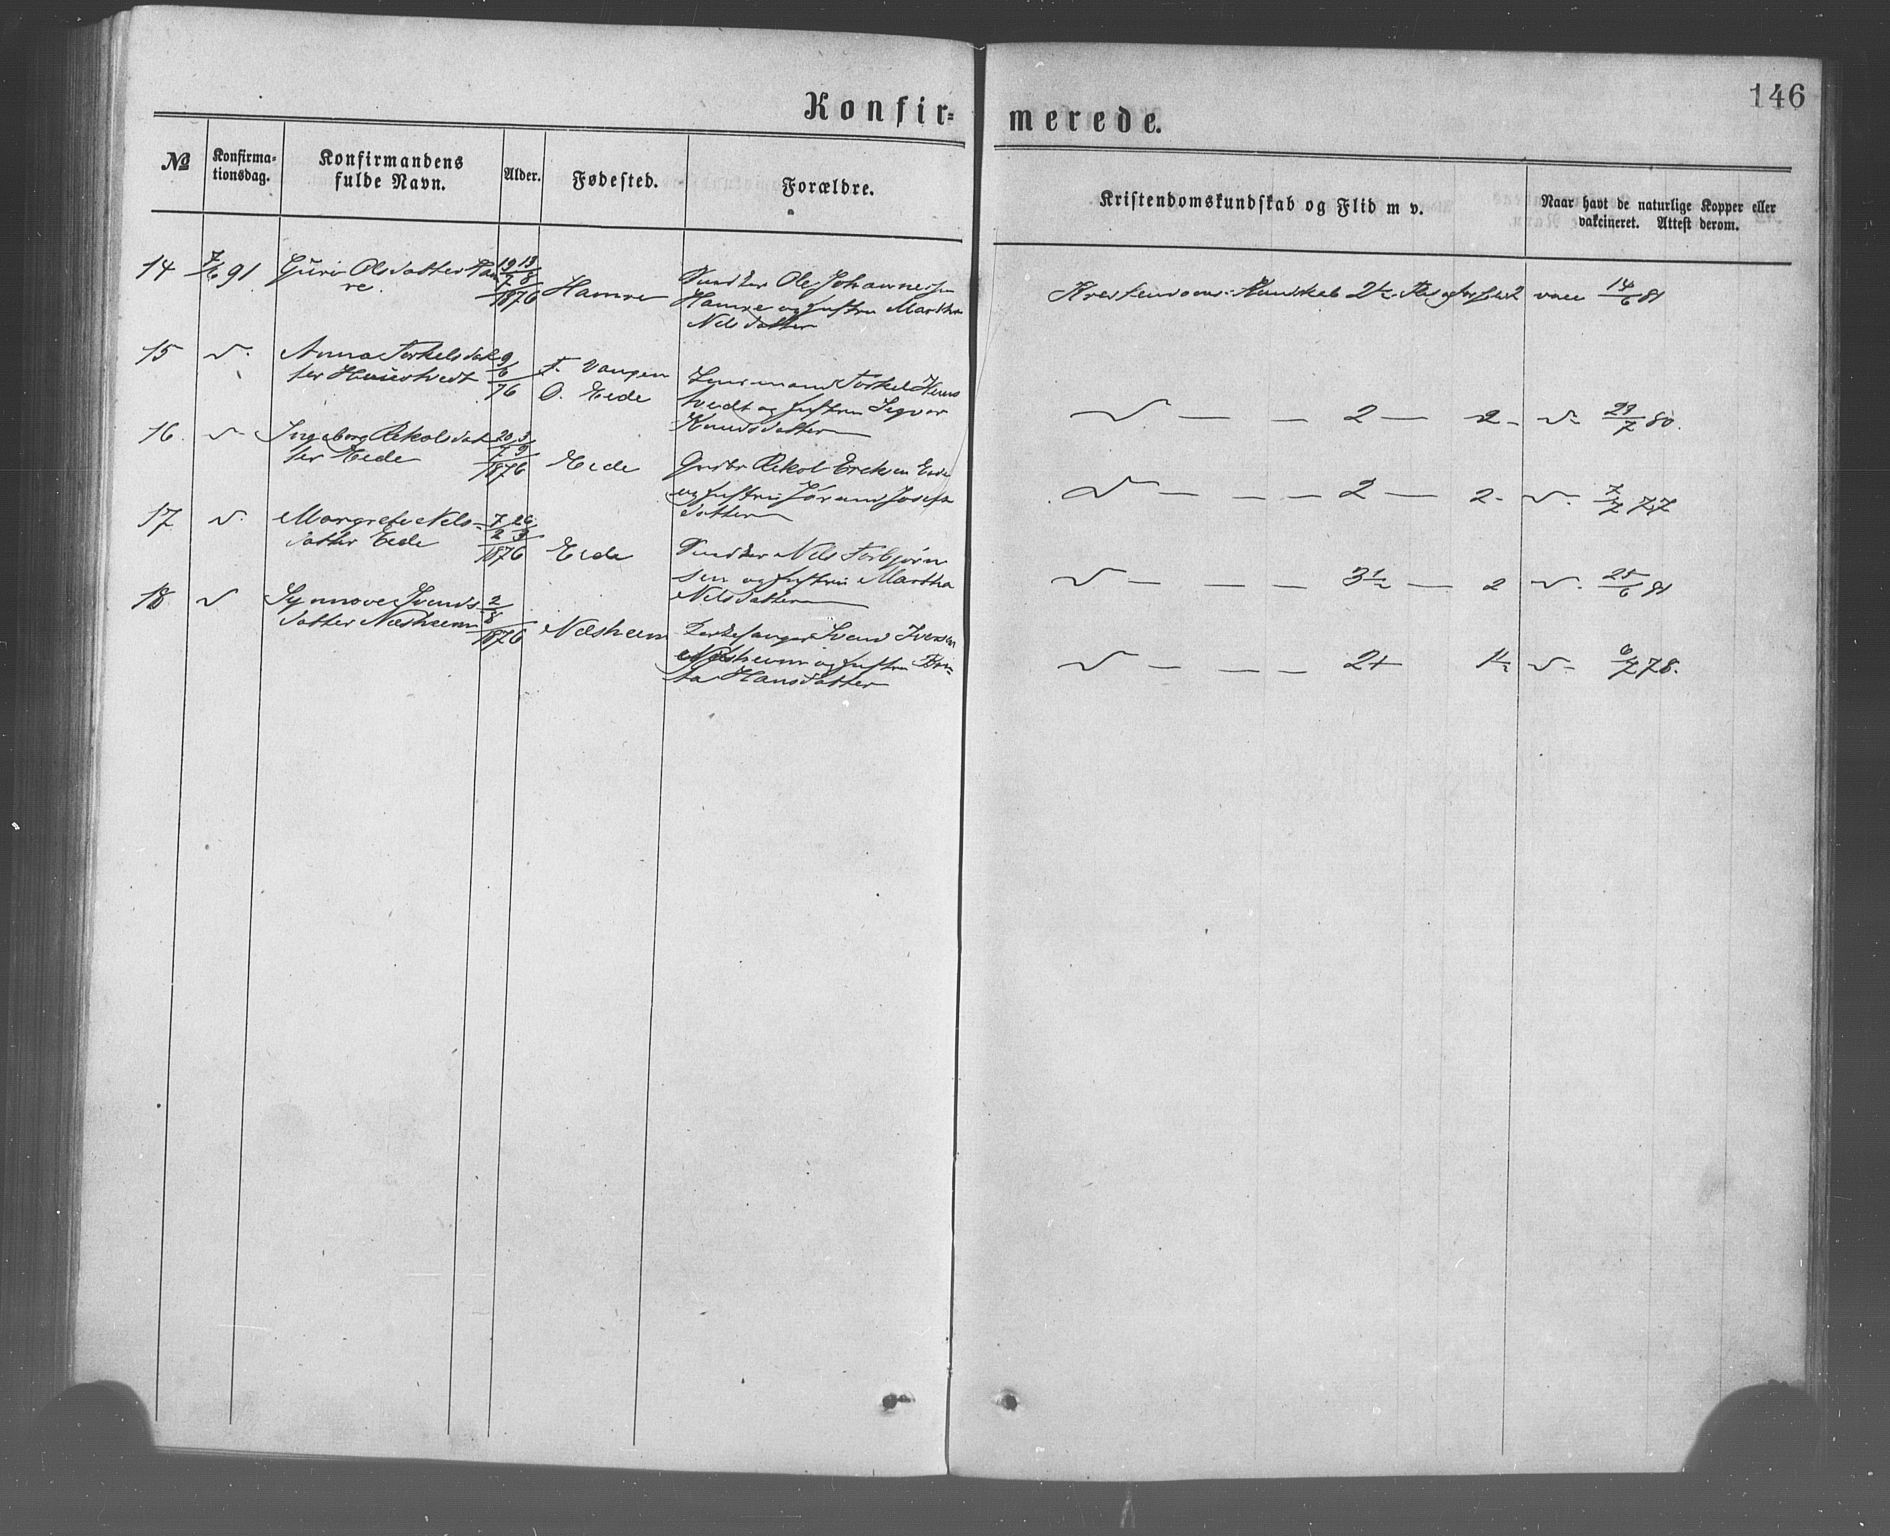 146
Konfir=
merede.
№
Konfirma=
tionsdag.
Konfirmandens
fulde Navn.
Alder.
Fødested.
Forældre.
Kristendomskundskab og Flid m v.
Naar havt de naturlige Kopper eller
vakcineret. Attest derom.
14 7/6 91. Guri Olsdatter Ham
re
19/7 13/8
1876
Hamre
Ole Johannesen
Hamre og hustru Martha
Nelsdatter
Kristendoms-Kundskab 2½ 2 vacc 14/6 81
15 v. Anna Torkelsdat
ter
9/6
76
F. Vangen
O. Eide
Lensmand Torkel
tvedt og hustru
Knudsdatter
v — — 2 — 2 - v. 23/7 80.
16. v Ingeborg Rikolsdat
ter Eide
20/7 3/9
1876
Eide
Gndbr Rikol Ericksen Eide
og hustru Jorand Josefs
datter
v — — — 2 — 2 - v. 7/7 77
17 v. Margrete Nels-
datter Eide
7/2 26/3
1876
Eide
Nels Torbjørn
sen og hustru Martha
Nelsdatter
v — — — 3½ — 2 v. 25/6 81
18 v Synnove Svends-
datter Næsheim
2/8
1876
Næsheim
Kirkesanger Svend Iversen
Næsheim og hustru Bri-
ta Hansdatter
v — — — 2+ 1½ v. 6/7 78.